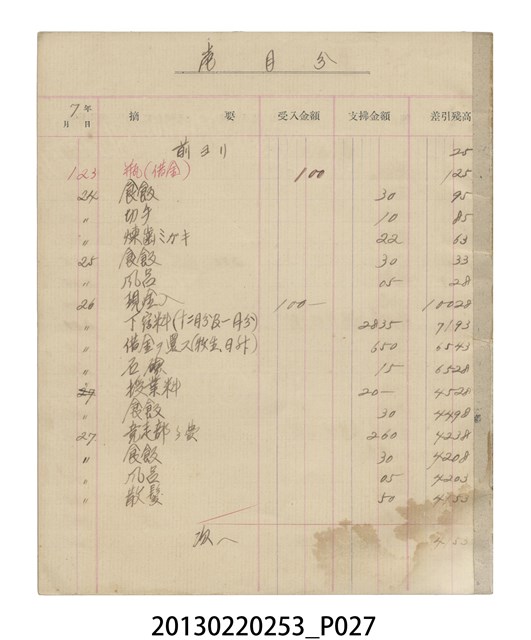 壱月分
7年
月 日 摘 要 受入金額 支拂金額 差引残高
前ヨリ 25
1 23 (借金) 100 125
24 食飯 30 95
〃 切手 10 85
〃 煉歯ミガキ 22 63
25 食飯 30 33
〃 風呂 05 28
26 現金入 100— 10028
〃 下宿料(十二月分及一月分) 2835 7193
〃 借金ヲ置ス 650 6543
〃 石鹸 15 6528
〃 授業料 20— 4528
〃 食飯 30 4498
27 部 260 4238
〃 食飯 30 4208
〃 風呂 05 4203
〃 散髪 50 4153
次へ 4153
20130220253_P027